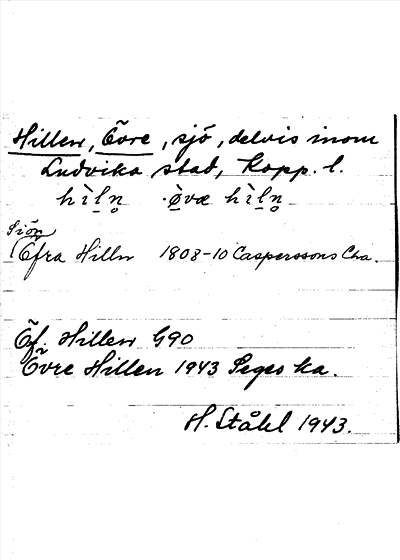 Hillen, Övre, sjö, delvis inom
Ludvika stad, Kopp. l.
hìln̥ ·òvæ hìln̥
Sjön
Öfra Hilln 1808-10 Casperssons Cha.
Öf. Hillen G90
Övre Hillen 1943 Seges ka.
H. Ståhl 1943.